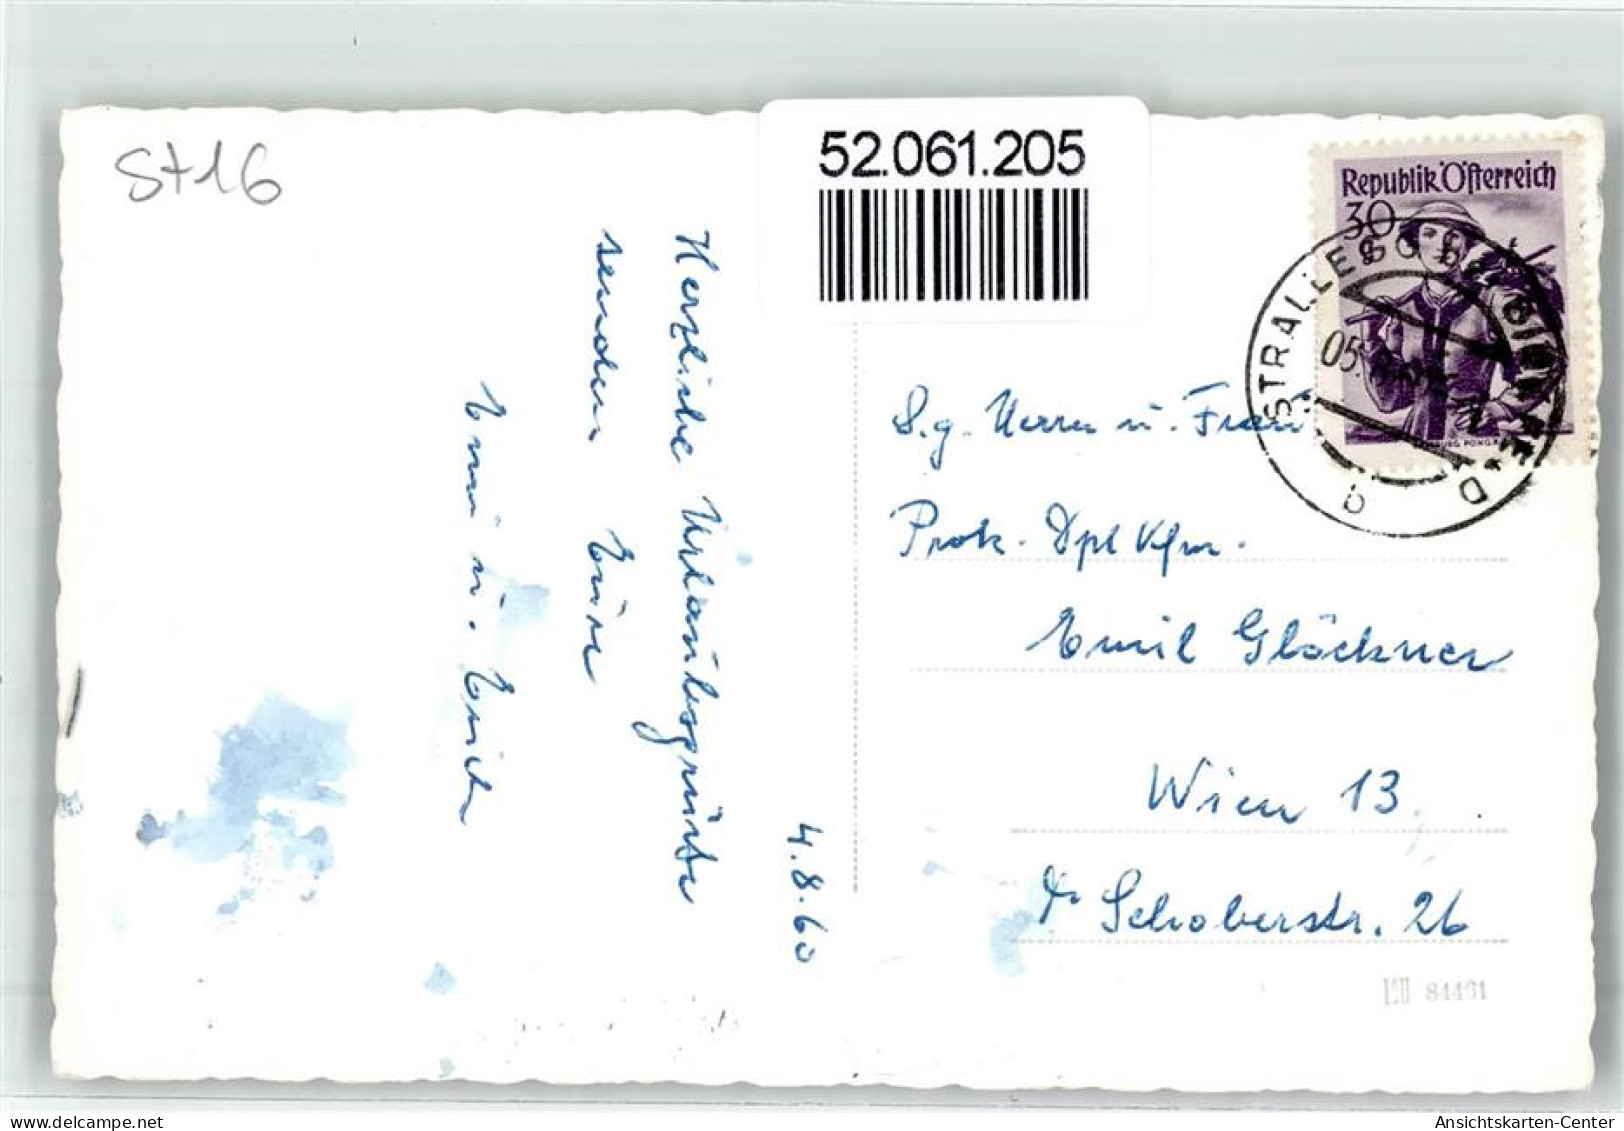 St 16
52.061.205
Republik Österreich
30
STRALLEGG bei BIRKFELD
05.
4.8.60
Herzliche Urlaubsgrüße
senden Eure
Erni u. Erich
S.g. Herrn u. Frau
Prok. Dpl Kfm.
Emil Glöckner
Wien 13.
Dr Schoberstr. 26
84461
Ansichtskarten-Center